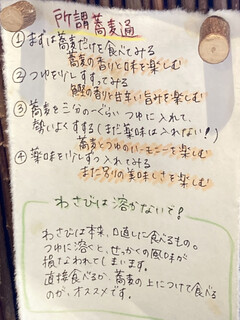 所謂蕎麦通
①まずは蕎麦だけを食べてみる
蕎麦の香りと味を楽しむ
②つゆを少しすすってみる
鰹の香りと甘辛い旨みを楽しむ
③蕎麦を三分の一ぐらいつゆに入れて、
勢いよくすする(まだ薬味は入れない!)
蕎麦とつゆのハーモニーを楽しむ
④薬味を少しずつ入れてみる
また別の美味しさを楽しむ
わさびは溶かないで!
わさびは本来、口直しに食べるもの。
つゆに溶くと、せっかくの風味が
損なわれてしまいます。
直接食べるか、蕎麦の上につけて食べる
のが、オススメです。